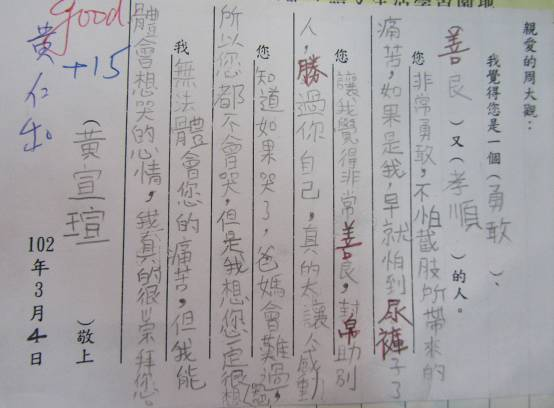 親愛的周大觀：
我覺得您是一個（勇敢）、
（善良）又（孝順）的人。
您非常勇敢，不怕截肢所帶來的
痛苦，如果是我，早就怕到尿褲子了
您讓我覺得非常善良，對幫助別
人，勝過你自己，真的太讓人感動
您知道如果哭了，爸媽會難過，
所以您都不會哭，但是我想您一定很想
我無法體會您的痛苦，但我能
體會想哭的心情，我真的很崇拜您
（黃宣瑄）敬上
102年3月4日
good
+15
黃仁